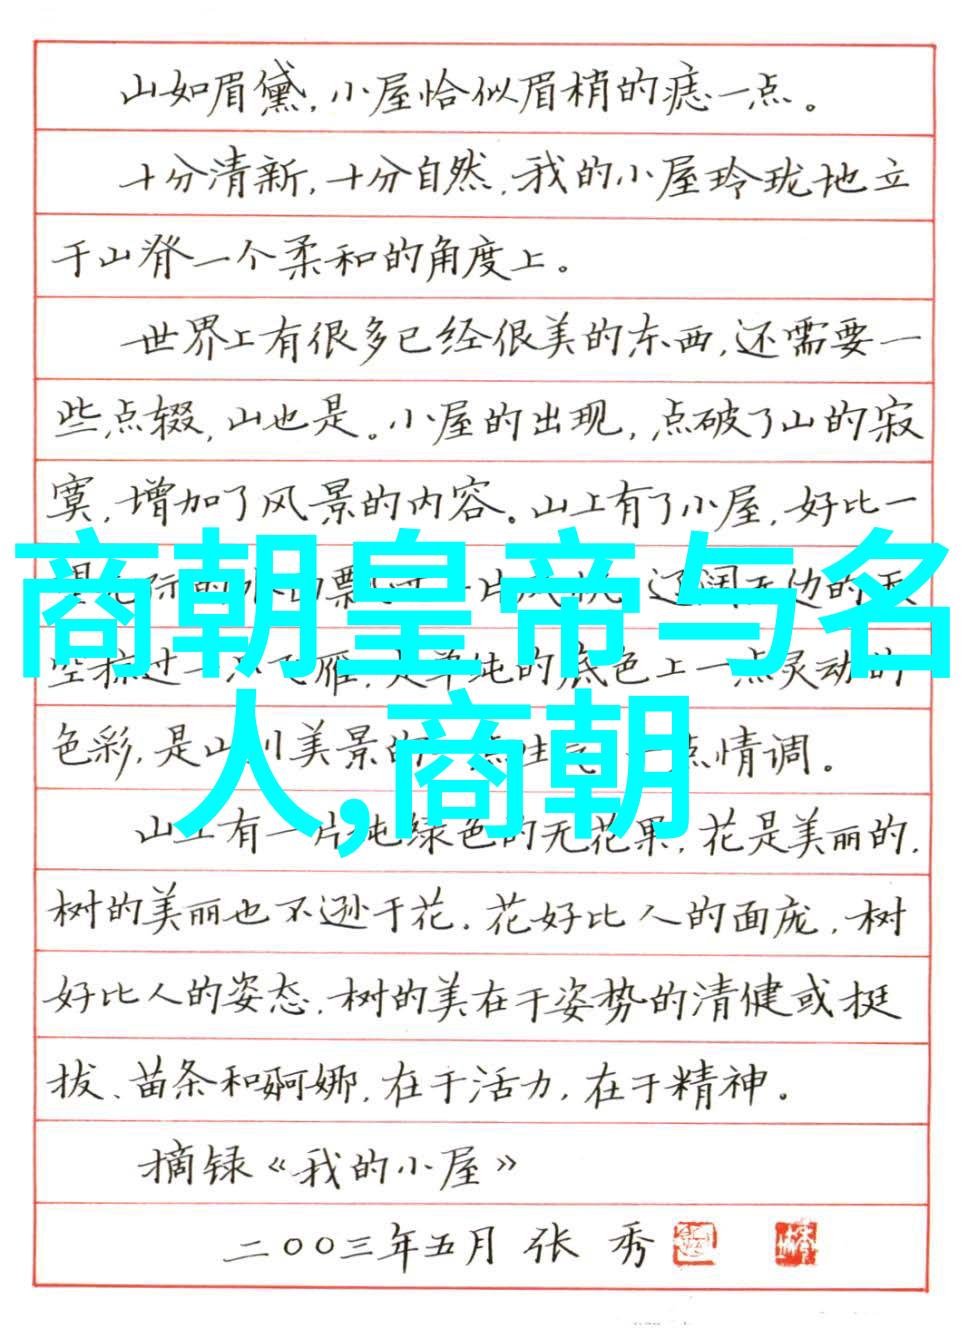 山如眉黛,小屋恰似眉梢的痣一点。
十分清新,十分自然,我的小屋玲珑地立
于山脊一个柔和的角度上。
世界上有很多已经很美的东西,还需要一
些点缀,山也是。小屋的出现,点破了山的寂
寞,增加了风景的内容。山上有了小屋,好比一
商朝皇帝与名
片风帆 辽阔无边的天
空掠过一 雁,是单纯的底色上一点灵动的
人,商朝
色彩,是山川美景的 点 情调。
山上有一片纯绿色的无花果,花是美丽的,
树的美丽也不逊于花。花好比人的面庞,树
好比人的姿态。树的美在于姿势的清健或挺
拔、苗条和婀娜,在于活力,在于精神。
摘録《我的小屋》
二〇〇三年五月 张 秀